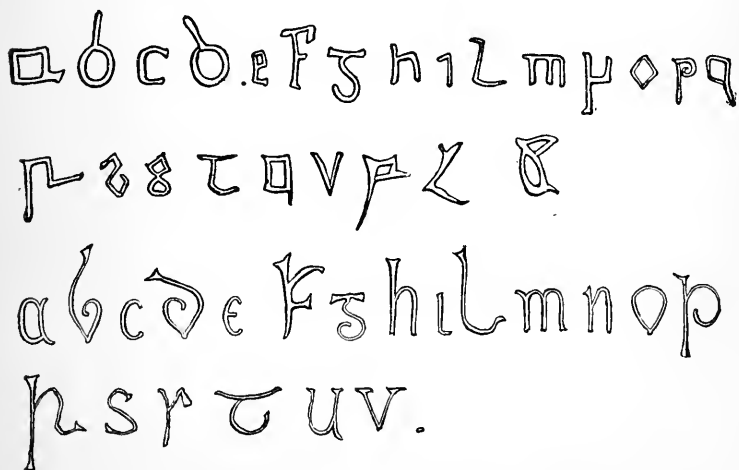 a b c d . e f g h i l m n o p q
r s 8 τ q v
a b c d e f g h i l m n o p
r s r τ u v .